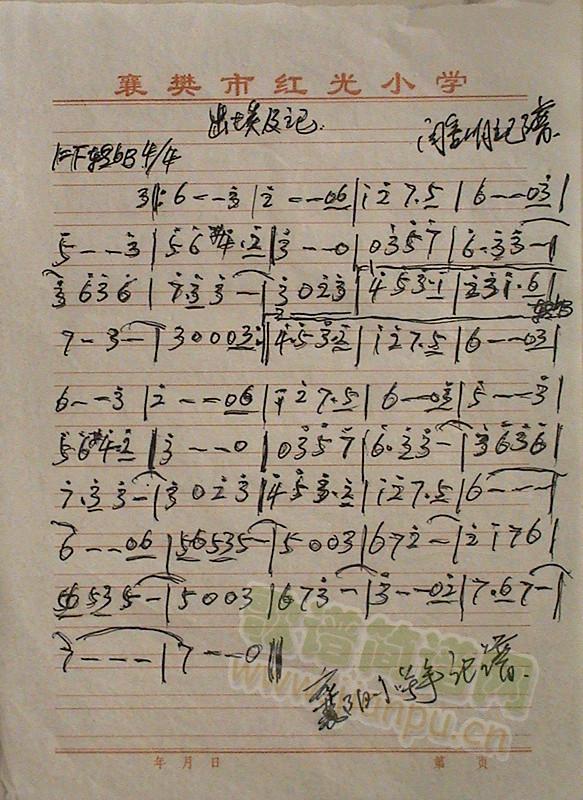 襄樊市红光小学
出埃及记
1=F转bB 4/4
3‖: 6 - - 3 | 2 - - 06 | i 2 7. 5 | 6 - - 03 |
5 - - 3 | 5 6 #4. 2 | 3 - - 0 | 0 3 5 7 | 6. 3 3 - |
3 6 3 6 | 7. 3 3 - | 3 0 2 3 | 4 5 3. 1 | 2 3 1. 6 |
转bB
7 - 3 - | 3 0 0 03 :‖ 4. 5 3. 2 | i 2 7. 5 | 6 - - 03 |
6 - - 3 | 2 - - 06 | i 2 7. 5 | 6 - - 03 | 5 - - 3 |
5 6 #4. 2 ‖ 3 - - 0 | 0 3 5 7 | 6. 3 3 - | 3 6 3 6 |
7. 3 3 - | 3 0 2 3 | 4 5 3. 2 | i 2 7. 5 | 6 - - - |
6 - - 06 | 56 535 - | 5 0 0 3 | 6 7 2 - | 2 1 7 6 |
56 535 - | 5 0 0 3 | 6 7 3 - | 3 - - 02 | 7. 6 7 - |
7 - - - | 7 - - 0 ‖
记谱
歌谱简谱网
www.jianpu.cn
年 月 日
第 页